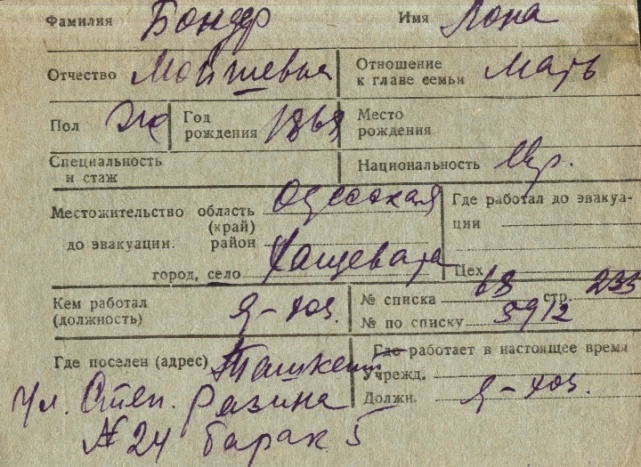 Фамилия Бондер Имя Лона
Отчество Мойшевна Отношение к главе семьи Мать
Пол Ж Год рождения 1869 Место рождения
Специальность и стаж Национальность Евр.
Местожительство область Одесская Где работал до эвакуа-
(край) ции
до эвакуации: район
город, село Хащевата Цех
Кем работал (должность) Д-хоз. № списка 68 стр. 235
№ по списку 5912
Где поселен (адрес) Ташкент Где работает в настоящее время
Учрежд.
Ул. Степ. Разина Должн. Д-хоз.
№ 24 барак 5